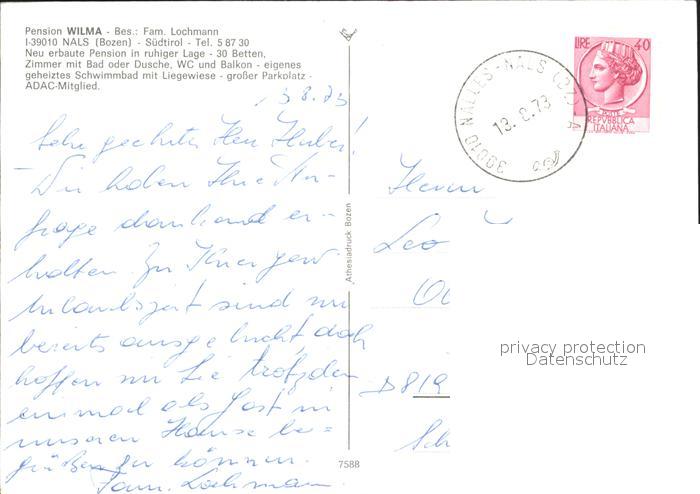 Pension WILMA - Bes.: Fam. Lochmann
I-39010 NALS (Bozen) - Südtirol - Tel. 5 87 30
Neu erbaute Pension in ruhiger Lage - 30 Betten,
Zimmer mit Bad oder Dusche, WC und Balkon - eigenes
geheiztes Schwimmbad mit Liegewiese - großer Parkplatz -
ADAC-Mitglied.
LIRE 40
REPVBBLICA
ITALIANA
39010 NALLES-NALS (BZ) A
13.8.73
13 8.73
Sehr geehrter Herr Huber!
Wir haben Ihre An-
frage dankend er-
halten. Zu Ihrer gew.
Urlaubszeit sind wir
bereits ausgebucht, doch
hoffen wir Sie trotzdem
einmal als Gast in
unserem Hause be=
grüßen zu können.
Fam. Lochmann.
Athesiadruck Bozen
7588
Herrn
Leo
D 819
Sch
privacy protection
Datenschutz